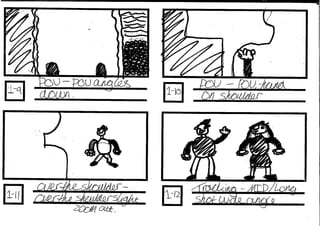 1-9
POV - POV angles
down.
1-10
POV - POV hand
on shoulder
1-11
over the shoulder -
over the shoulder slight
zoom out.
1-12
Tracking - MID/Long
shot wide angle